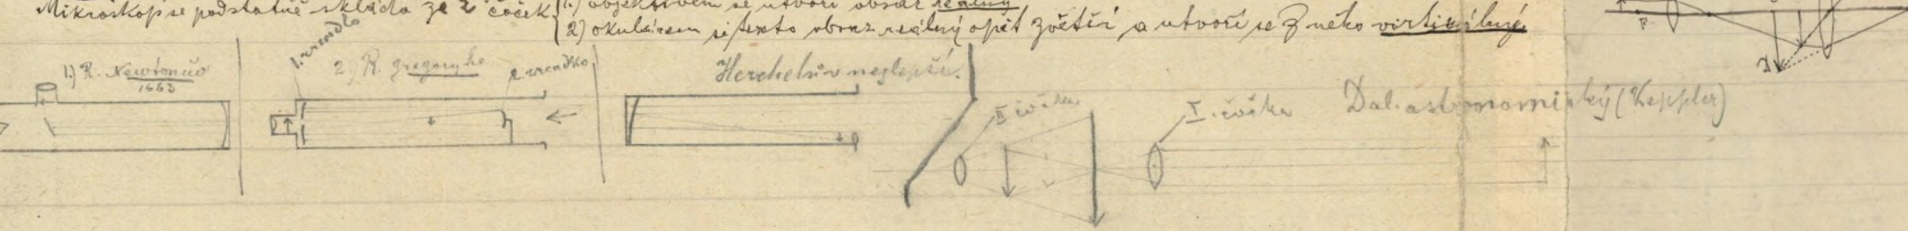 Mikroskop se podstatně skládá ze 2 čoček
1.) objektivem se utvoří obraz reálný
2) okulárem si tento obraz reálný opět zvětší a utvoří se z něho virtuálný
1.) R. Newtonův
1663
1. zrcadlo
2. R. Gregoryho
2 zrcadko.
Herchelův nejlepší.
II čočka
I. čočka
Dal. astronomický (Keppler)
F.